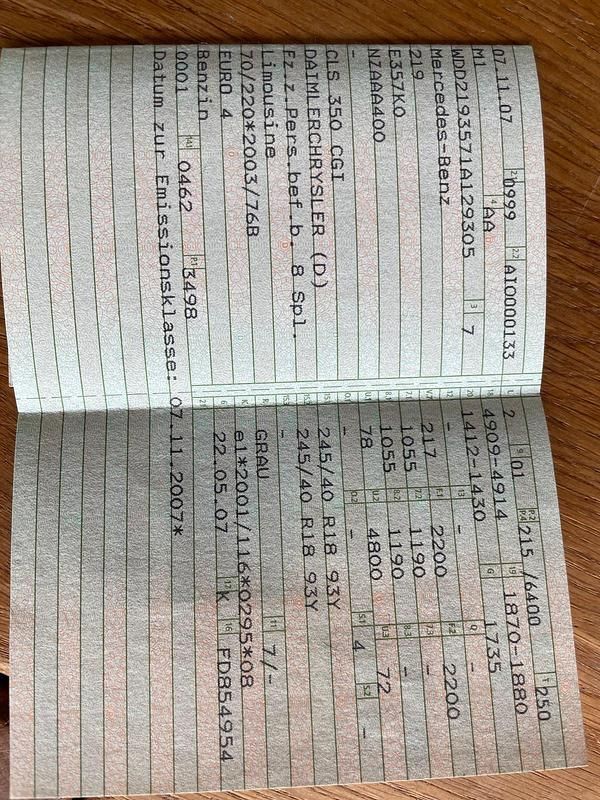 07.11.07 2.1 0999 2.2 AIO000133
M1 4 AA
WDD2193571A129305 3 7
Mercedes-Benz
219
E357K0
NZAAA400
-
CLS 350 CGI
DAIMLERCHRYSLER (D)
Fz.z.Pers.bef.b. 8 Spl.
Limousine
70/220*2003/76B
EURO 4
Benzin
0001 0462 P.1 3498
Datum zur Emissionsklasse: 07.11.2007*
2 9 01 P.2 P.4 215 /6400 T 250
18 4909-4914 19 1870-1880
20 1412-1430 G 1735
12 - 13 - Q -
V.7 217 F.1 2200 F.2 2200
7.1 1055 7.2 1190 7.3 -
8.1 1055 8.2 1190 8.3 -
U.1 78 U.2 4800 U.3 72
O.1 - O.2 - S.1 4 S.2 -
15.1 245/40 R18 93Y
15.2 245/40 R18 93Y
15.3 -
R GRAU 11 7/-
K e1*2001/116*0295*08
6 22.05.07 17 K 16 FD854954
21